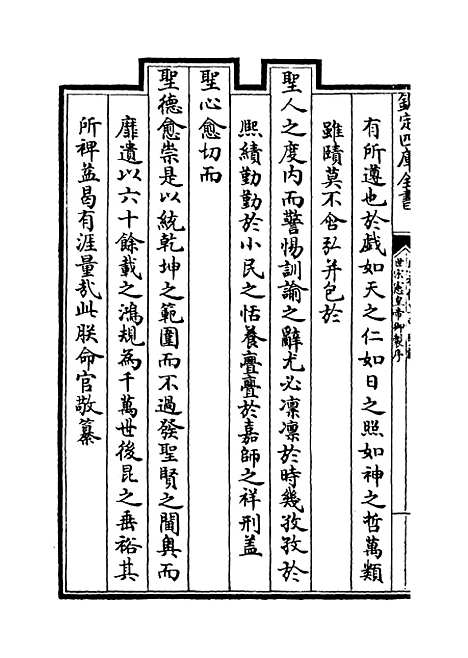 欽定四庫全書
世宗憲皇帝御製序
有所遵也於戲如天之仁如日之照如神之哲萬類
雖賾莫不含弘并包於
聖人之度内而警惕訓諭之辭尤必凜凜於時幾孜孜於
熙績勤勤於小民之恬養亹亹於嘉師之祥刑蓋
聖心愈切而
聖德愈崇是以統乾坤之範圍而不過發聖賢之閫奥而
靡遺以六十餘載之鴻規為千萬世後昆之垂裕其
所裨益曷有涯量哉此朕命官敬纂